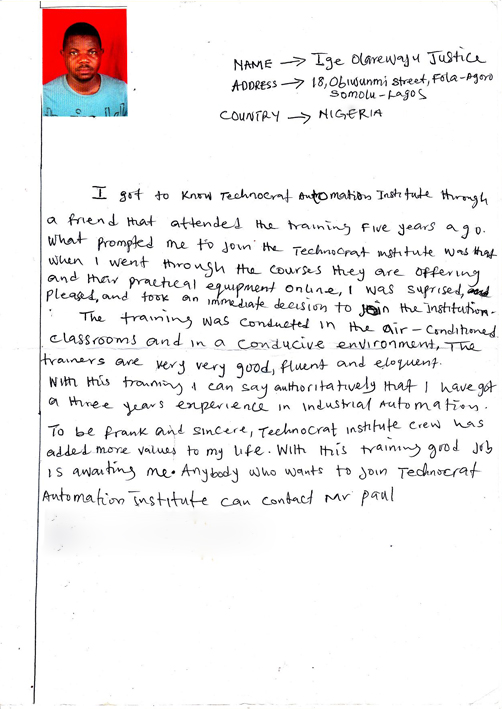 NAME → Ige Olarewaju Justice
ADDRESS → 18, Obiwunmi street, Fola-Agoro
Somolu - Lagos
COUNTRY → NIGERIA
I got to know Technocrat Automation Institute through
a friend that attended the training five years ago.
What prompted me to join the Technocrat institute was that
when I went through the courses they are offering
and their practical equipment online, I was suprised,
pleased, and took an immediate decision to join the Institution.
The training was conducted in the air-conditioned
classrooms and in a conducive environment, The
trainers are very very good, fluent and eloquent.
With this training I can say authoritatively that I have got
a three years experience in Industrial Automation.
To be frank and sincere, Technocrat institute crew has
added more values to my life. With this training good job
is awaiting me. Anybody who wants to join Technocrat
Automation Institute can contact Mr Paul